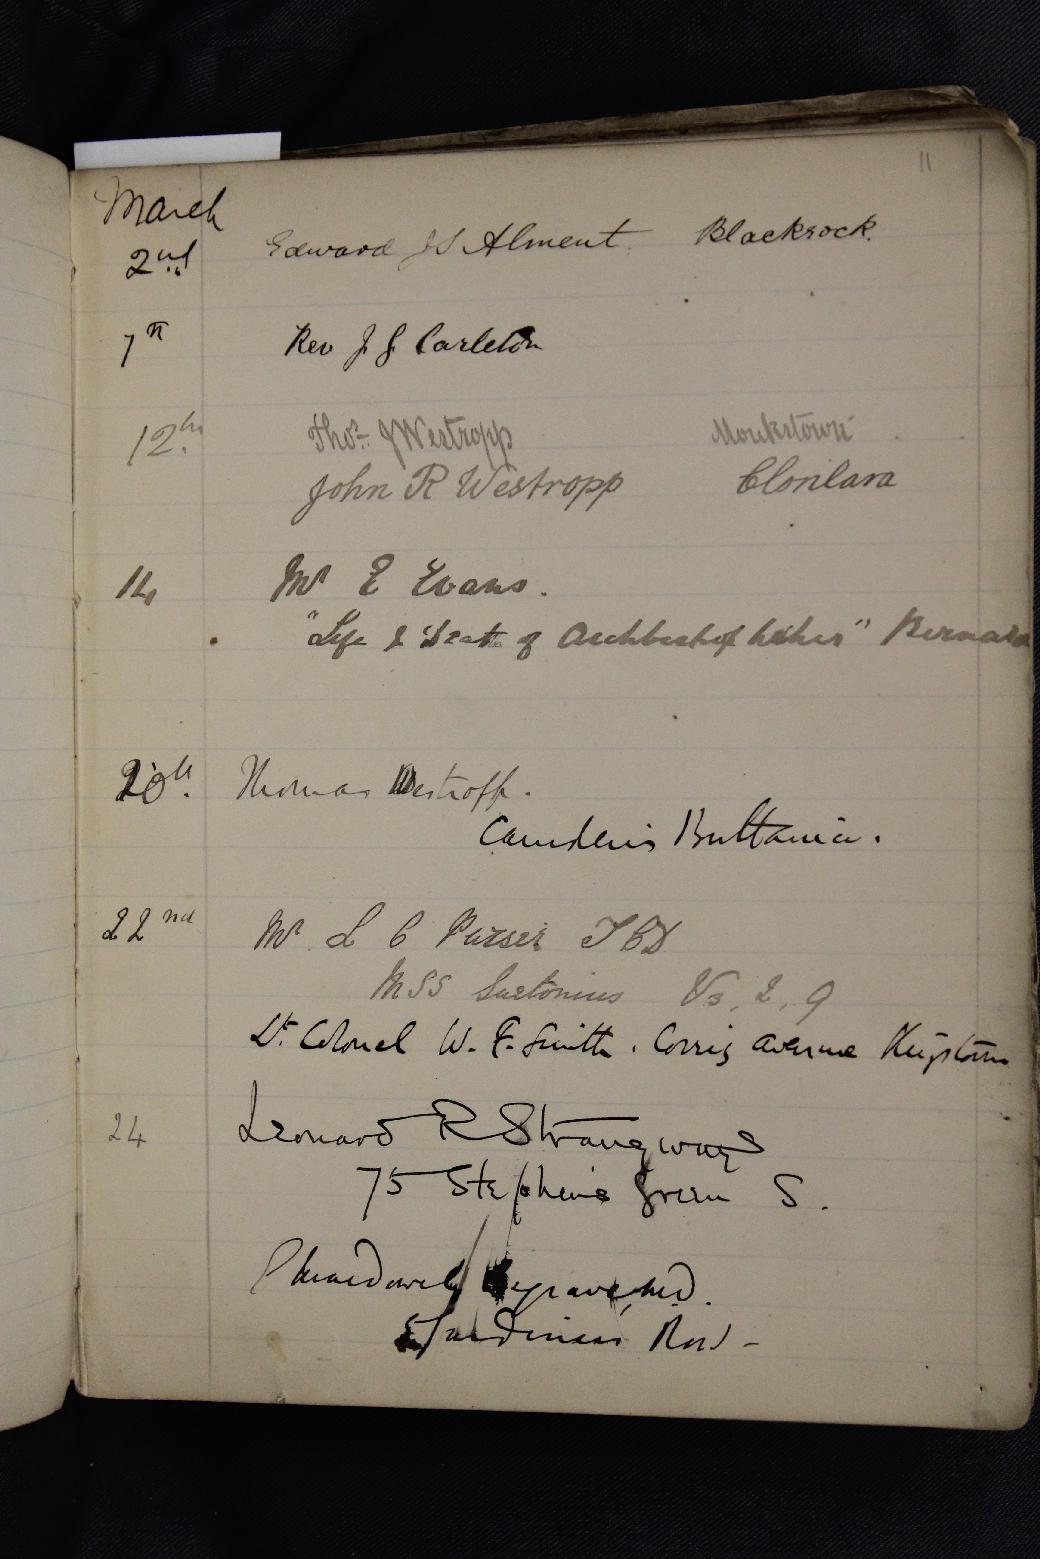 11
March
2nd Edward J S Alment. Blackrock.
7th Rev J G Carleton
12th. Thos. J Westropp Monkstown
John R Westropp Clonlara
14 Mr E Evans.
"Life & Death of Archbishop Usher" Bernard
20th. Thomas Westropp.
Camden's Brittania.
22nd Mr L C Purser TCD
MSS Suetonius V3, 2, 9
Lt. Colonel W. F. Smith. Corrig Avenue Kingstown
24 Leonard R Strangways
75 Stephens Green S.
Row -